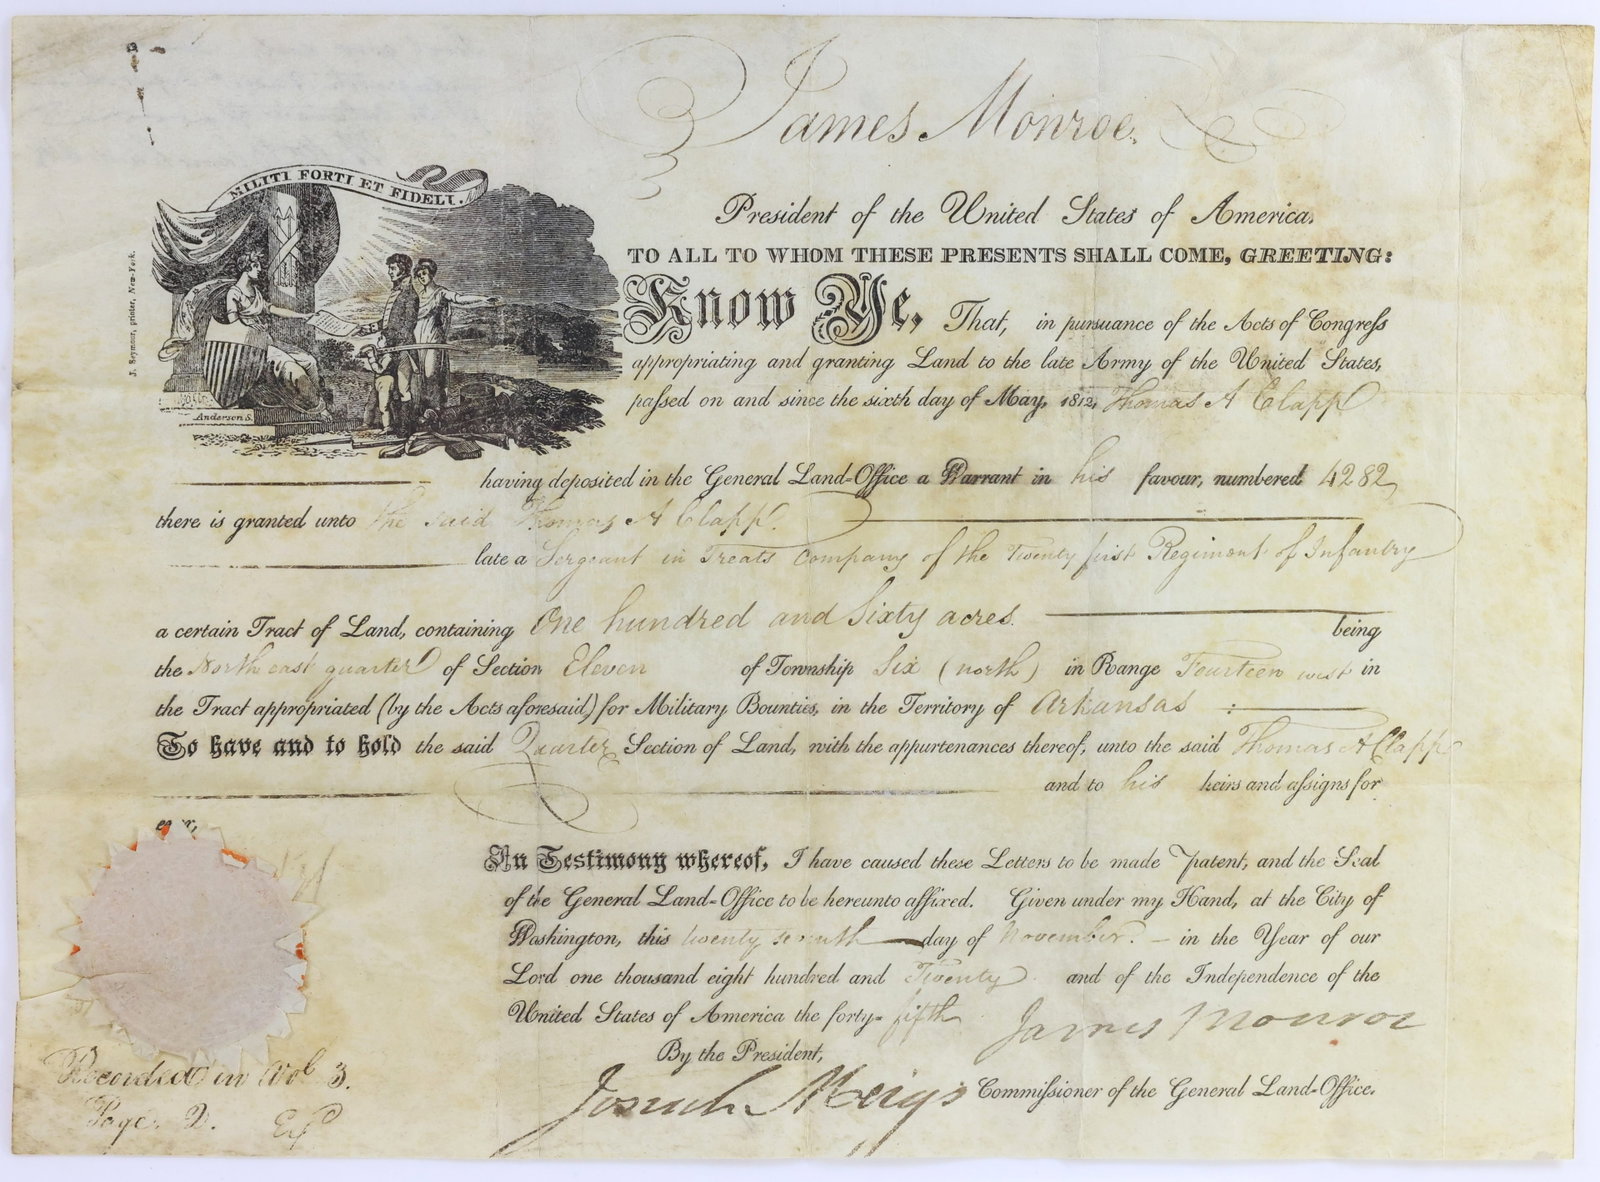 James Monroe,
MILITI FORTI ET FIDELI.
President of the United States of America,
TO ALL TO WHOM THESE PRESENTS SHALL COME, GREETING:
Know Ye, That, in pursuance of the Acts of Congress
appropriating and granting Land to the late Army of the United States,
passed on and since the sixth day of May, 1812, Thomas A Clapp
J. Seymour, printer, New-York.
Anderson S.
having deposited in the General Land-Office a Warrant in his favour, numbered 4282,
there is granted unto the said Thomas A Clapp.
late a Sergeant in Treats Company of the Twenty first Regiment of Infantry
a certain Tract of Land, containing One hundred and Sixty acres. being
the North east quarter of Section Eleven of Township Six (north) in Range Fourteen west in
the Tract appropriated (by the Acts aforesaid) for Military Bounties, in the Territory of Arkansas :
To have and to hold the said Quarter Section of Land, with the appurtenances thereof, unto the said Thomas A Clapp
and to his heirs and assigns for
ever,
In Testimony whereof, I have caused these Letters to be made Patent, and the Seal
of the General Land-Office to be hereunto affixed. Given under my Hand, at the City of
Washington, this twenty seventh day of November. in the Year of our
Lord one thousand eight hundred and Twenty and of the Independence of the
United States of America the forty-fifth
James Monroe
By the President,
Josiah Meigs Commissioner of the General Land-Office.
Recorded in Vol 3.
Page 2. Exd